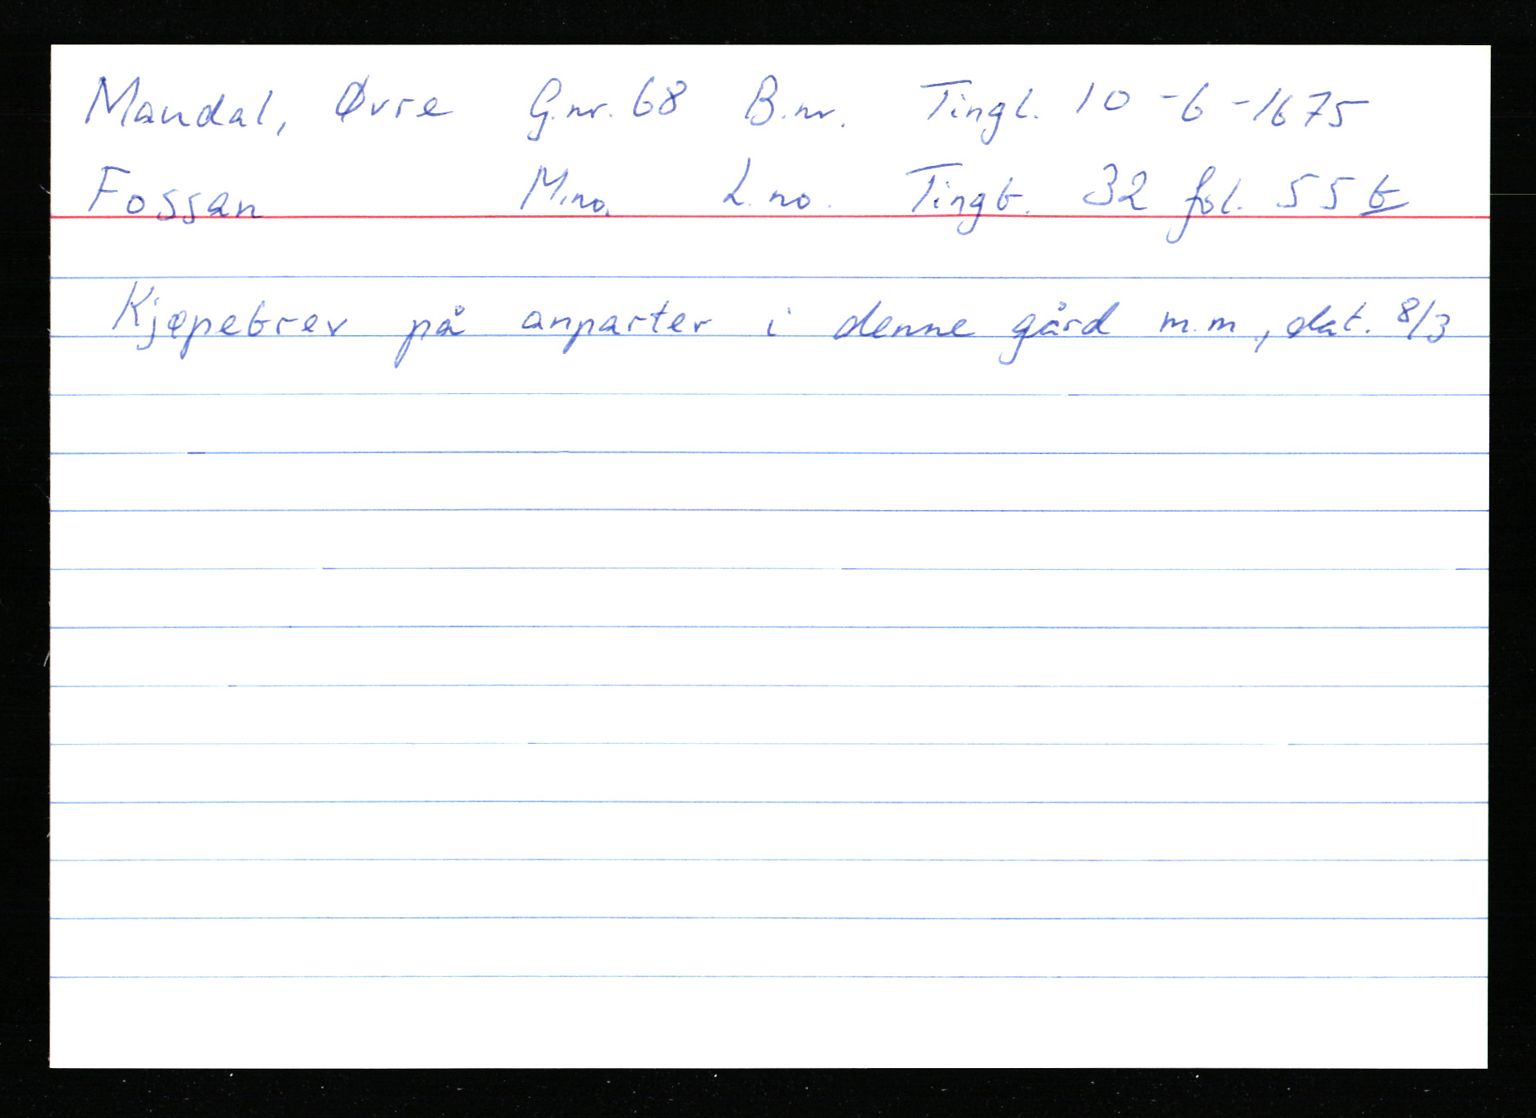 Mandal, Øvre G.nr. 68 B.nr. Tingl. 10-6-1675
Fossan M.no. L.no. Tingb. 32 fol. 55 b
Kjøpebrev på anparter i denne gård m.m, dat. 8/3